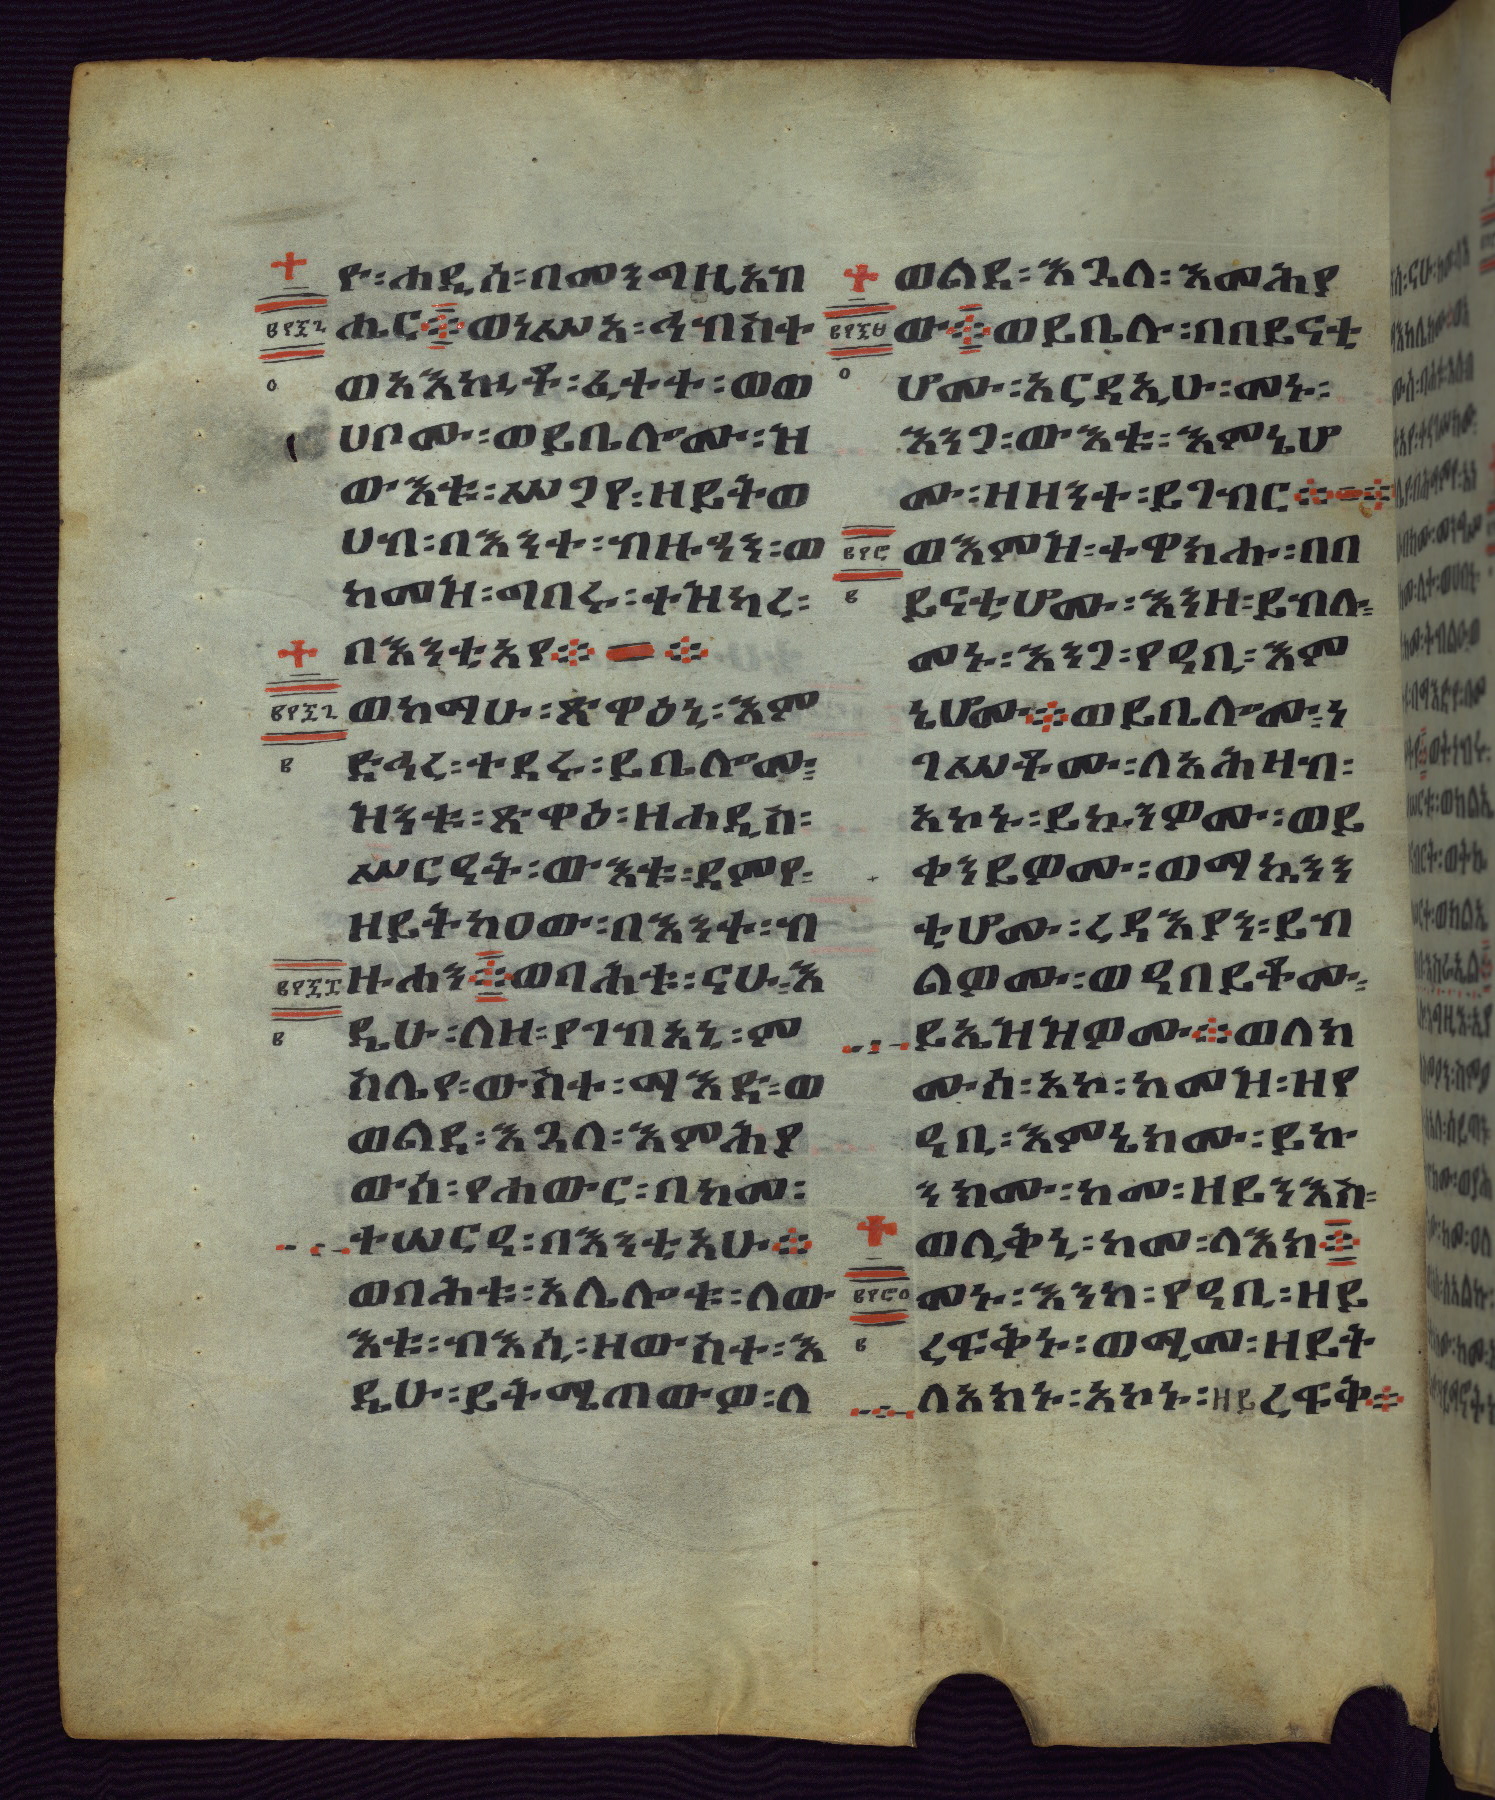 ዮ፡ሐዲሰ፡በመንግዚአብ
ሔር፨ወነሥአ፡ኅብስተ
ወአእኰቶ፡ፈተተ፡ወወ
ሀቦሙ፡ወይቤሎሙ፡ዝ
ውእቱ፡ሥጋየ፡ዘይትወ
ሀብ፡በእንተ፡ብዙኃን፡ወ
ከመዝ፡ግበሩ፡ተዝካረ፡
በእንቲአየ፨ ፨
ወከማሁ፡ጽዋዕኒ፡እም
ድኅረ፡ተደሩ፡ይቤሎሙ፡
ዝንቱ፡ጽዋዕ፡ዘሐዲስ፡
ሥርዓት፡ውእቱ፡ደምየ፡
ዘይትከዐው፡በእንተ፡ብ
ዙሐን፨ወባሕቱ፡ናሁ፡እ
ዴሁ፡ለዘ፡ያገብአኒ፡ም
ስሌየ፡ውስተ፡ማእድ፡ወ
ወልደ፡እጓለ፡እምሕያ
ውሰ፡የሐውር፡በከመ፡
ተሠርዓ፡በእንቲአሁ፨
ወባሕቱ፡አሌሎቱ፡ለው
እቱ፡ብእሲ፡ዘውስተ፡እ
ዴሁ፡ይትሜጠውዎ፡ለ
ወልደ፡እጓለ፡እመሕያ
ው፨ወይቤሉ፡በበይናቲ
ሆሙ፡አርዳኢሁ፡መኑ፡
እንጋ፡ውእቱ፡እምኔሆ
ሙ፡ዘዘንተ፡ይገብር፨ ፨
ወእምዝ፡ተዋከሑ፡በበ
ይናቲሆሙ፡እንዘ፡ይብሉ፡
መኑ፡እንጋ፡የዓቢ፡እም
ኔሆሙ፨ወይቤሎሙ፡ን
ገሥቶሙ፡ለአሕዛብ፡
አኮኑ፡ይኴንዎሙ፡ወይ
ቀንይዎሙ፡ወማኴንን
ቲሆሙ፡ረዳእያን፡ይብ
ልዎሙ፡ወዓበይቶሙ፡
ይኤዝዝዎሙ፨ወለክ
ሙሰ፡አኮ፡ከመዝ፡ዘየ
ዓቢ፡እምኔክሙ፡ይኩ
ንክሙ፡ከመ፡ዘይንእስ፡
ወሊቅኒ፡ከመ፡ላእክ፨
መኑ፡እንከ፡የዓቢ፡ዘይ
ረፍቅኑ፡ወሚመ፡ዘይት
ለአክኑ፡አኮኑ፡ዘይረፍቅ፨